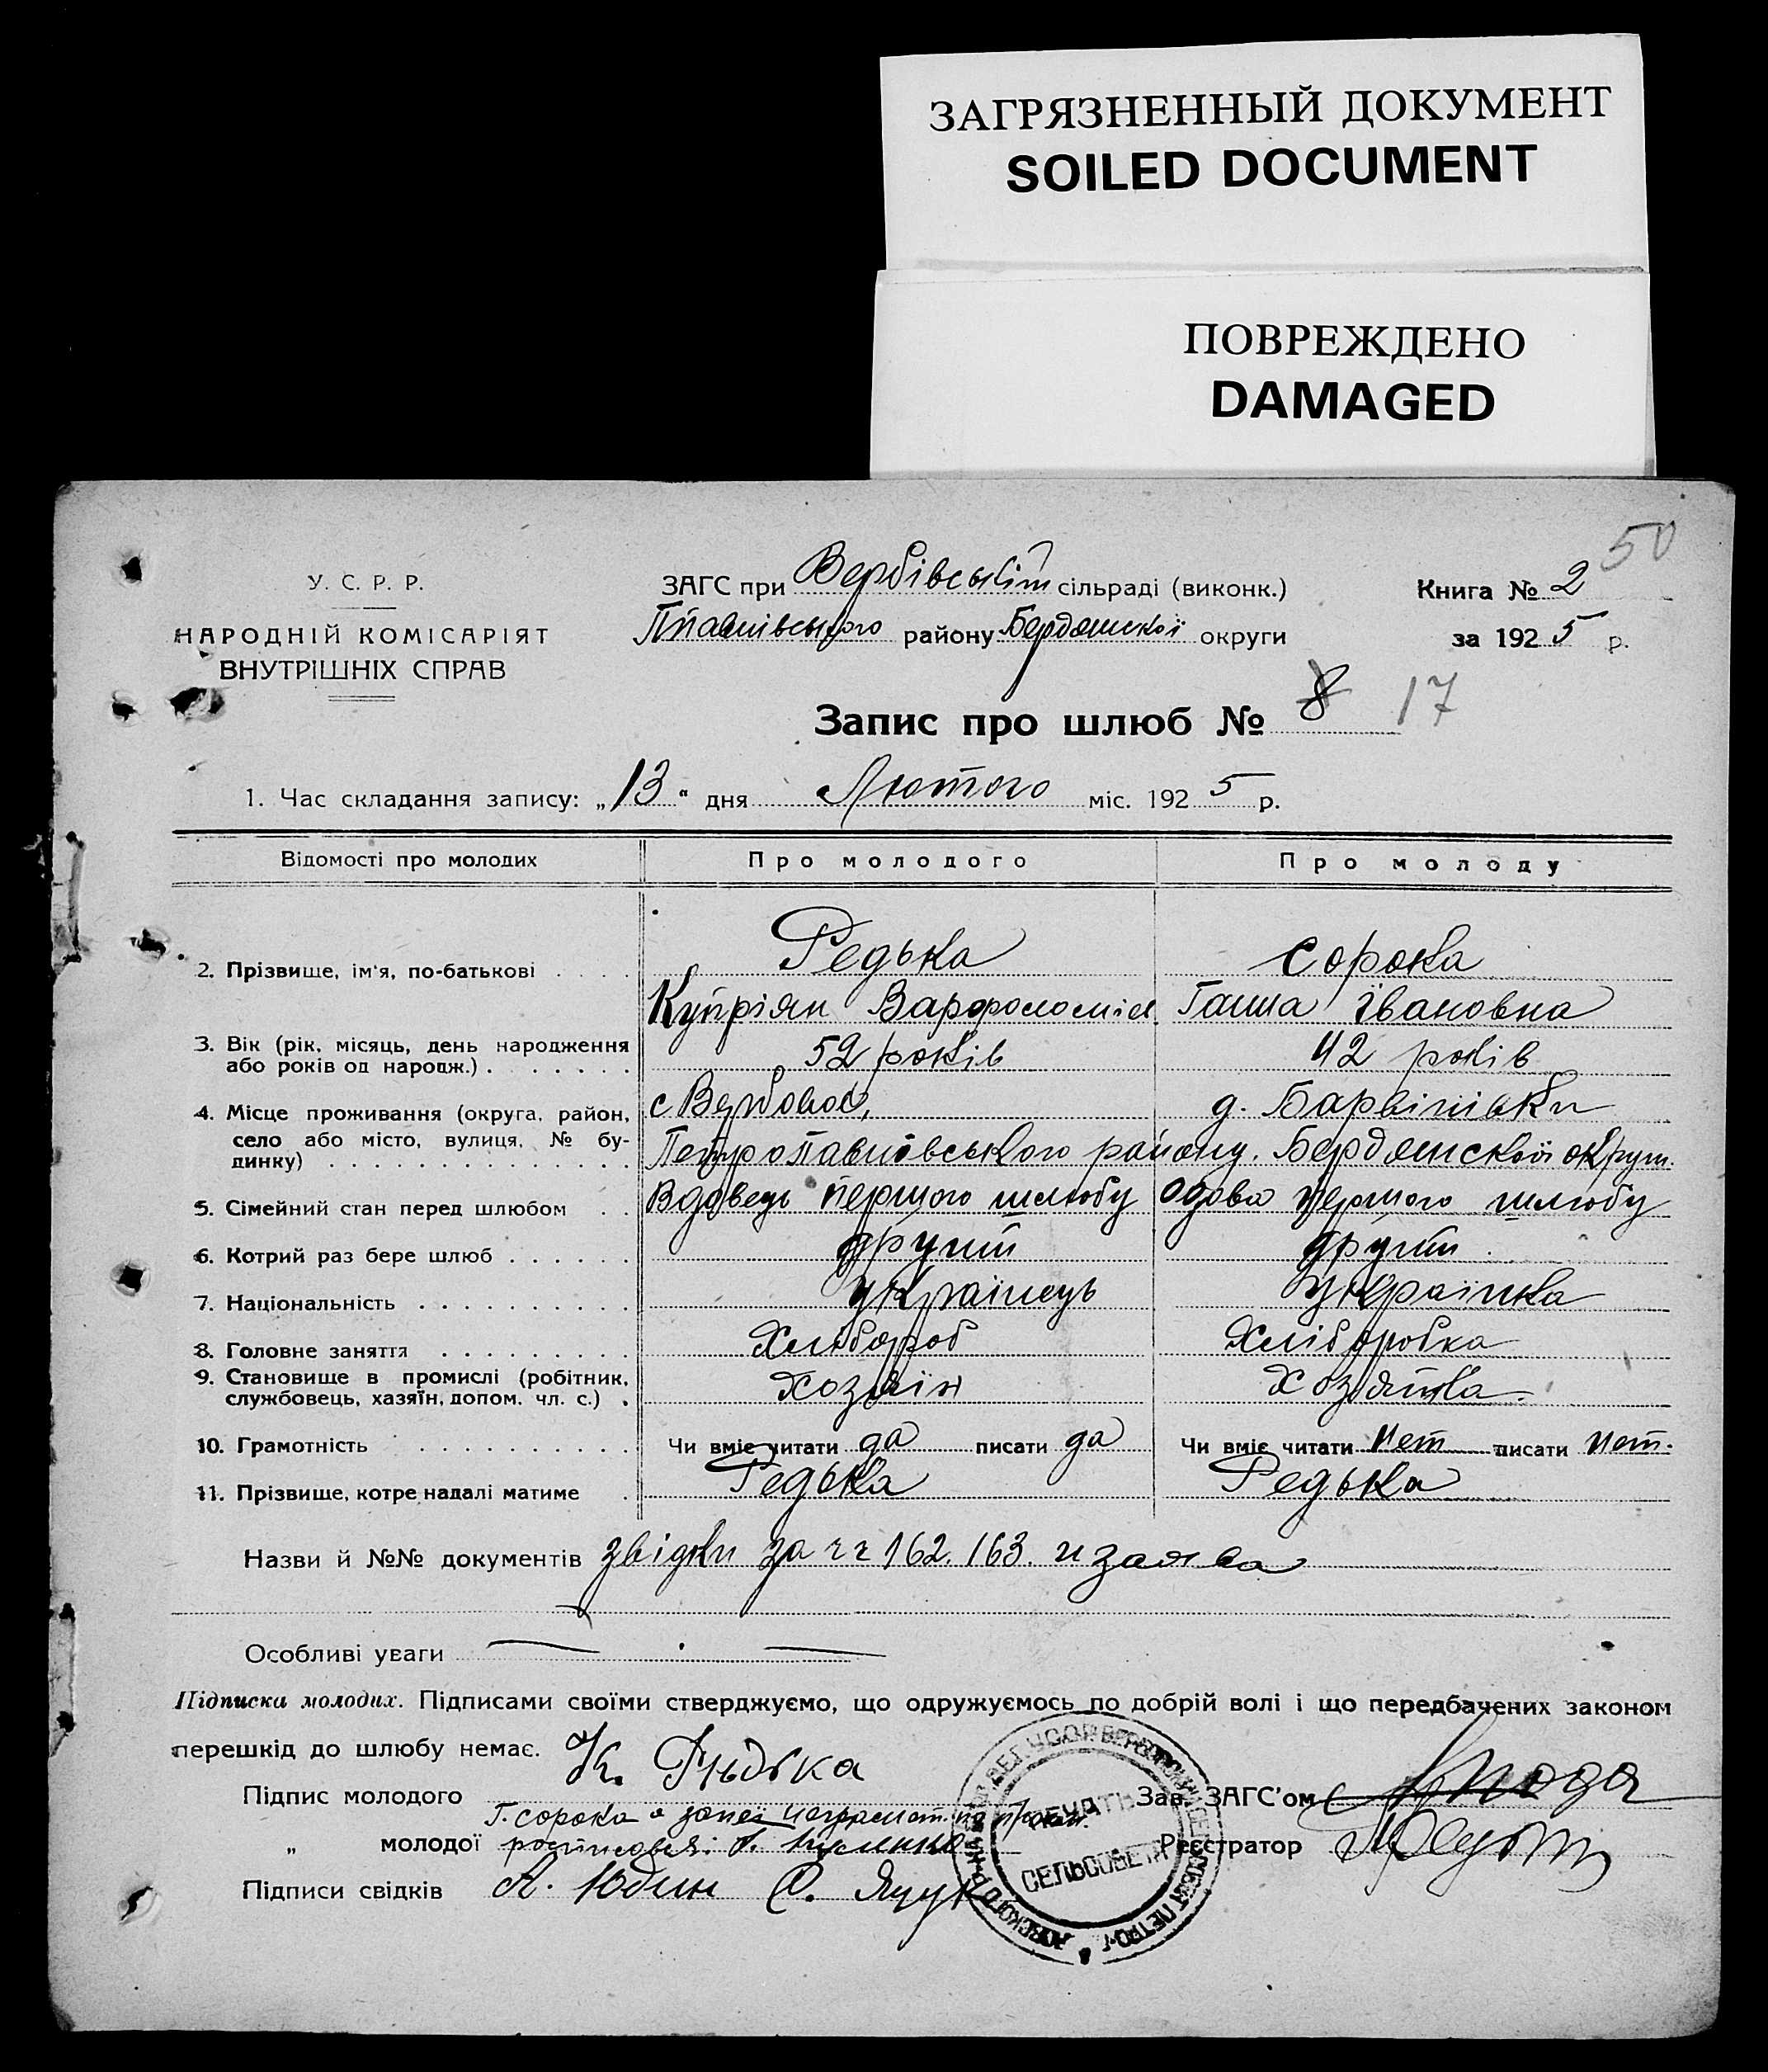 ЗАГРЯЗНЕННЫЙ ДОКУМЕНТ
SOILED DOCUMENT
ПОВРЕЖДЕНО
DAMAGED
50
У. С. Р. Р.
НАРОДНІЙ КОМІСАРІЯТ
ВНУТРІШНІХ СПРАВ
ЗАГС при Вербівській сільраді (виконк.)
району Бердянської округи
Книга № 2
за 1925 р.
Запис про шлюб № 8 17
1. Час складання запису: „13“ дня Лютого міс. 1925 р.
Відомості про молодих Про молодого Про молоду
2. Прізвище, ім'я, по-батькові Редька Сорока
Купріян Варфоломіев. Ганна Івановна
3. Вік (рік, місяць, день народження
або років од народж.) 52 років 42 років
4. Місце проживання (округа, район, с Вербової, д. Барвінівки
село або місто, вулиця, № бу-
динку) Петропавлівського району. Бердянскої округи.
5. Сімейний стан перед шлюбом Вдовець першого шлюбу Вдова першого шлюбу
6. Котрий раз бере шлюб другий другий
7. Національність українець українка
8. Головне заняття Хлібороб Хліборобка
9. Становище в промислі (робітник,
службовець, хазяїн, допом. чл. с.) Хозяїн Хозяйка
10. Грамотність Чи вміє читати да писати да Чи вміє читати Нет писати Нет.
11. Прізвище, котре надалі матиме Редька Редька
Назви й №№ документів звідки за чч 162. 163. и заява
Особливі уваги
Підписка молодих. Підписами своїми стверджуємо, що одружуємось по добрій волі і що передбачених законом
перешкід до шлюбу немає.
Підпис молодого К. Рѣдька
Г. Сорока а за неї неграмот.
„ молодої
Підписи свідків А. Юдин
Зав. ЗАГС'ом
Реєстратор
ПЕЧАТЬ
СЕЛЬСОВЕТА